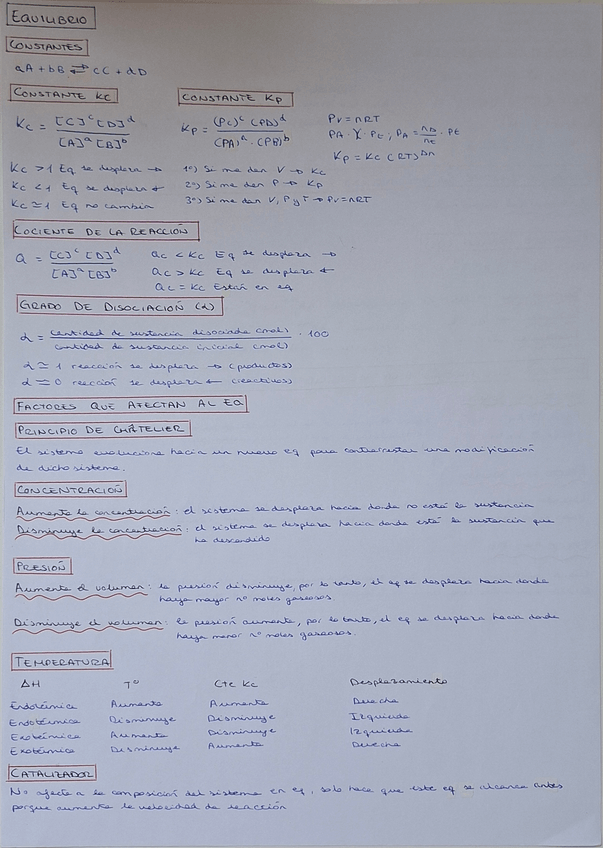 EQUILIBRIO
CONSTANTES
aA + bB ⇄ cC + dD
CONSTANTE KC
CONSTANTE KP
Kc = [C]^c [D]^d / [A]^a [B]^b
Kp = (Pc)^c (PD)^d / (PA)^a · (PB)^b
PV = nRT
PA = X · PE ; PA = nA/nE · PE
Kp = Kc (RT)^Δn
Kc > 1 Eq se desplaza →
Kc < 1 Eq se desplaza ←
Kc ≃ 1 Eq no cambia
1º) Si me dan V → Kc
2º) Si me dan P → Kp
3º) Si me dan V, P y T → PV=nRT
COCIENTE DE LA REACCIÓN
Q = [C]^c [D]^d / [A]^a [B]^b
Qc < Kc Eq se desplaza →
Qc > Kc Eq se desplaza ←
Qc = Kc Están en eq
GRADO DE DISOCIACIÓN (α)
α = cantidad de sustancia disociada (mol) / cantidad de sustancia inicial (mol) · 100
α ≃ 1 reacción se desplaza → (productos)
α ≃ 0 reacción se desplaza ← (reactivos)
FACTORES QUE AFECTAN AL EQ
PRINCIPIO DE CHÂTELIER
El sistema evoluciona hacia un nuevo eq para contrarrestar una modificación
de dicho sistema.
CONCENTRACIÓN
Aumenta la concentración: el sistema se desplaza hacia donde no está la sustancia
Disminuye la concentración: el sistema se desplaza hacia donde está la sustancia que
ha descendido
PRESIÓN
Aumenta el volumen: la presión disminuye, por lo tanto, el eq se desplaza hacia donde
haya mayor nº moles gaseosos
Disminuye el volumen: la presión aumenta, por lo tanto, el eq se desplaza hacia donde
haya menor nº moles gaseosos.
TEMPERATURA
ΔH Tº Cte Kc Desplazamiento
Endotérmica Aumenta Aumenta Derecha
Endotérmica Disminuye Disminuye Izquierda
Exotérmica Aumenta Disminuye Izquierda
Exotérmica Disminuye Aumenta Derecha
CATALIZADOR
No afecta a la composición del sistema en eq, solo hace que este eq se alcance antes
porque aumenta la velocidad de reacción